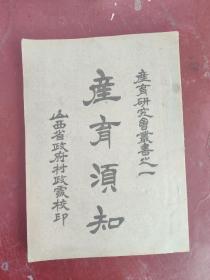 產育研究會叢書之一
產育須知
山西省政府村政處校印